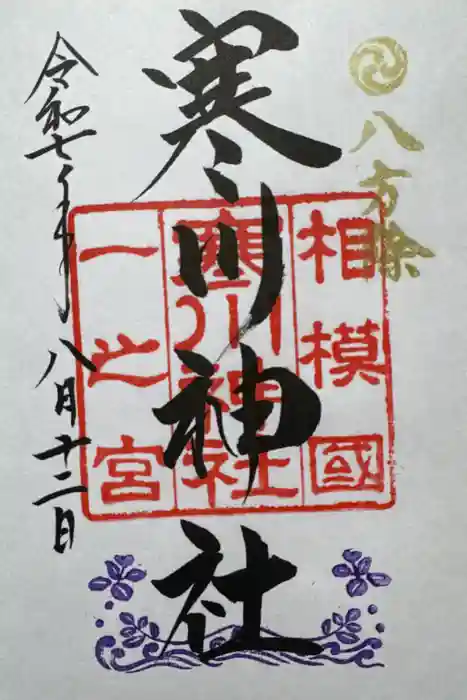 八方除
寒川神社
相模國
寒川神社
一之宮
令和七年
八月十二日